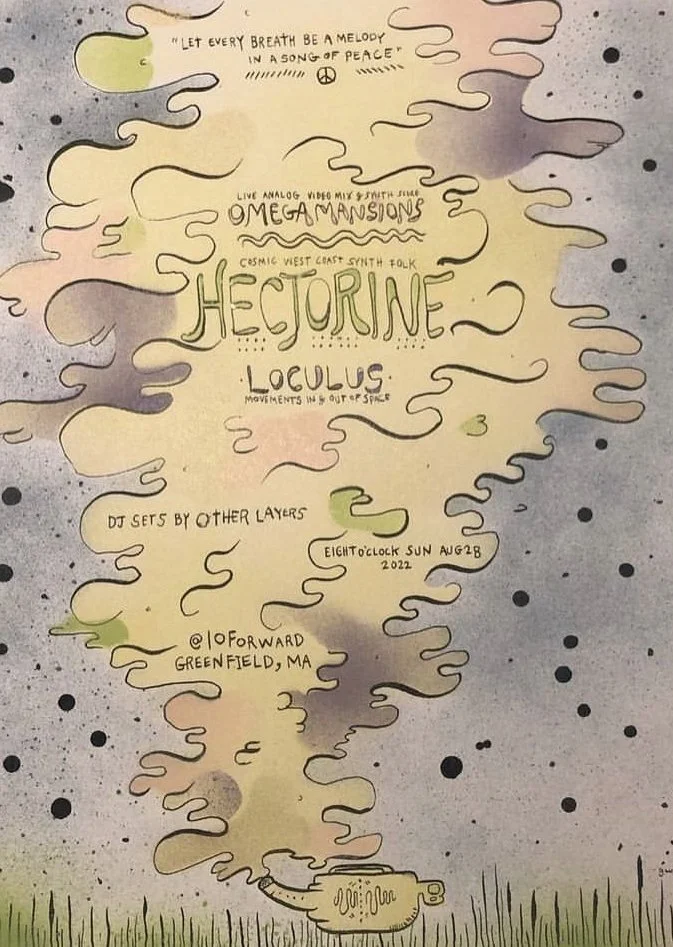 "LET EVERY BREATH BE A MELODY
IN A SONG OF PEACE"
LIVE ANALOG VIDEO MIX & SYNTH SCORE
OMEGA MANSIONS
COSMIC WEST COAST SYNTH FOLK
HECTORINE
LOCULUS
MOVEMENTS IN & OUT OF SPACE
DJ SETS BY OTHER LAYERS
EIGHT O'CLOCK SUN AUG 28
2022
@10FORWARD
GREENFIELD, MA